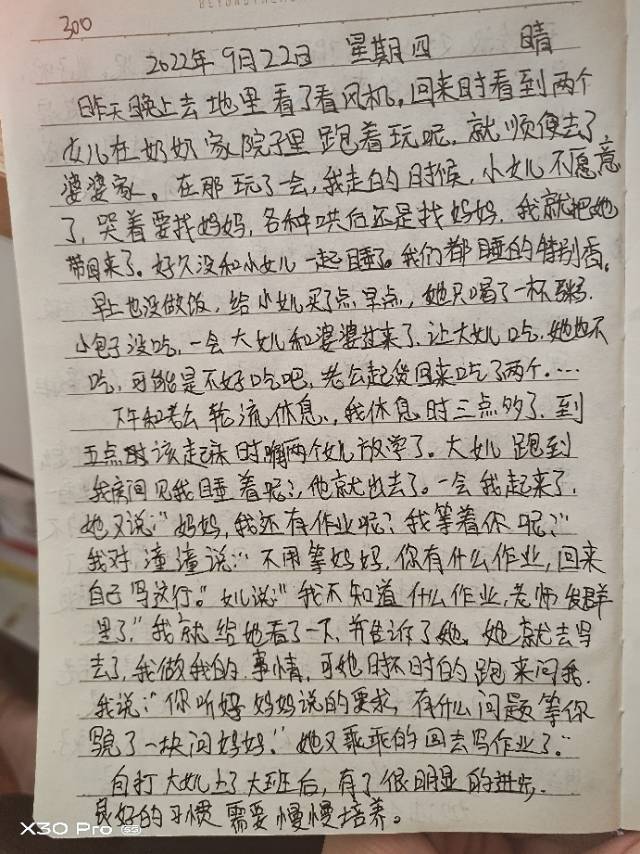 300
2022年9月22日 星期四 晴
昨天晚上去地里看了看风机。回来时看到两个
女儿在奶奶家院子里跑着玩呢,就顺便去了
婆婆家。在那玩了一会,我走的时候,小女儿不愿意
了,哭着要找妈妈,各种哄后还是找妈妈,我就把她
带回来了。好久没和小女儿一起睡了。我们都睡的特别香。
早上也没做饭,给小女儿买了点早点,她只喝了一杯粥.
小包子没吃,一会大女儿和婆婆过来了,让大女儿吃.她也不
吃,可能是不好吃吧,老公起货回来吃了两个....
下午和老公轮流休息,我休息时三点多了,到
五点时该起床时俩两个女儿放学了。大女儿跑到
我房间见我睡着呢?,他就出去了。一会我起来了,
她又说:"妈妈,我还有作业呢?我等着你呢?"
我对潼潼说:"不用等妈妈.你有什么作业,回来
自己写这行。"女儿说:"我不知道什么作业,老师发群
里了."我就给她看了一下,并告诉了她,她就去写
去了,我做我的事情,可她时不时的跑来问我.
我说:"你听好妈妈说的要求,有什么问题等你
写完了一块问妈妈."她又乖乖的回去写作业了."
自打大女儿上了大班后,有了很明显的进步,
良好的习惯需要慢慢培养。
X30 Pro 5G